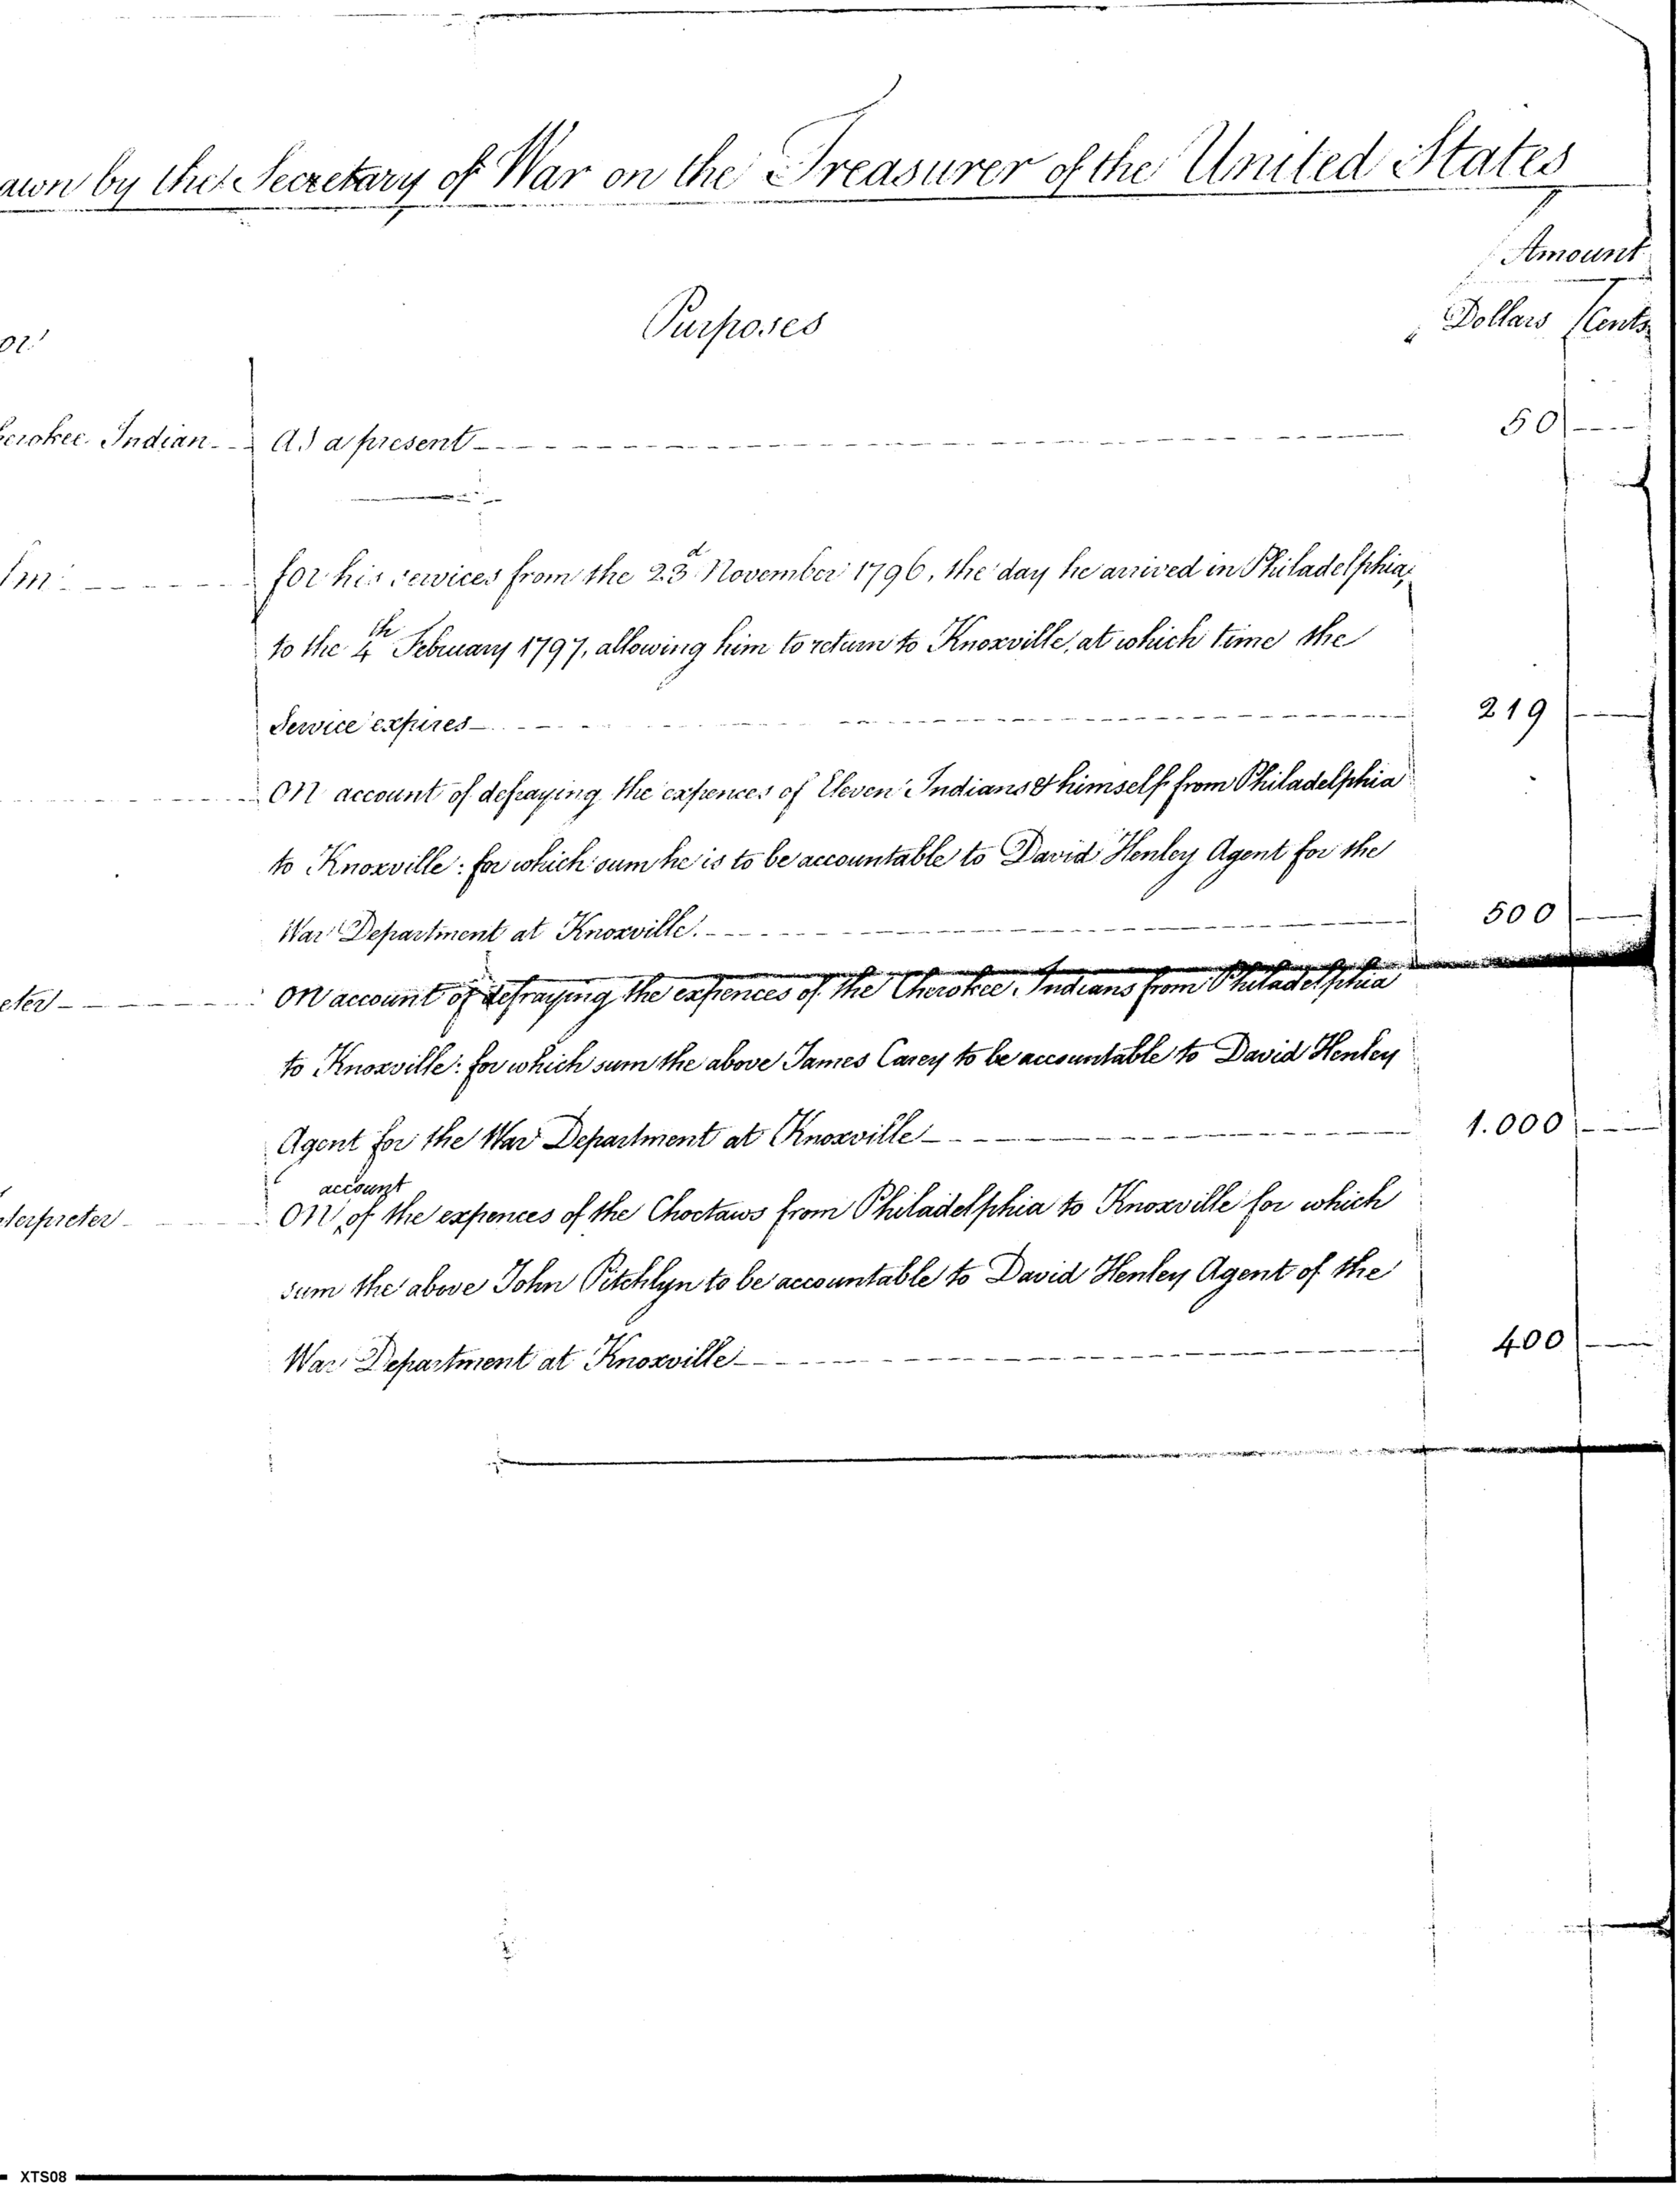 awn by the Secretary of War on the Treasurer of the United States
Amount
Purposes
Dollars Cents
or
erokee Indian
As a present
50
for his services from the 23d November 1796, the day he arrived in Philadelphia,
to the 4th February 1797, allowing him to return to Knoxville, at which time the
Service expires
219
on account of defraying the expences of Eleven Indians & himself from Philadelphia
to Knoxville: for which sum he is to be accountable to David Henley Agent for the
War Department at Knoxville.
500
eter
on account of defraying the expences of the Cherokee Indians from Philadelphia
to Knoxville: for which sum the above James Carey to be accountable to David Henley
Agent for the War Department at Knoxville
1.000
account
terpreter
On of the expences of the Choctaws from Philadelphia to Knoxville for which
sum the above John Pitchlyn to be accountable to David Henley Agent of the
War Department at Knoxville
400
XTS08